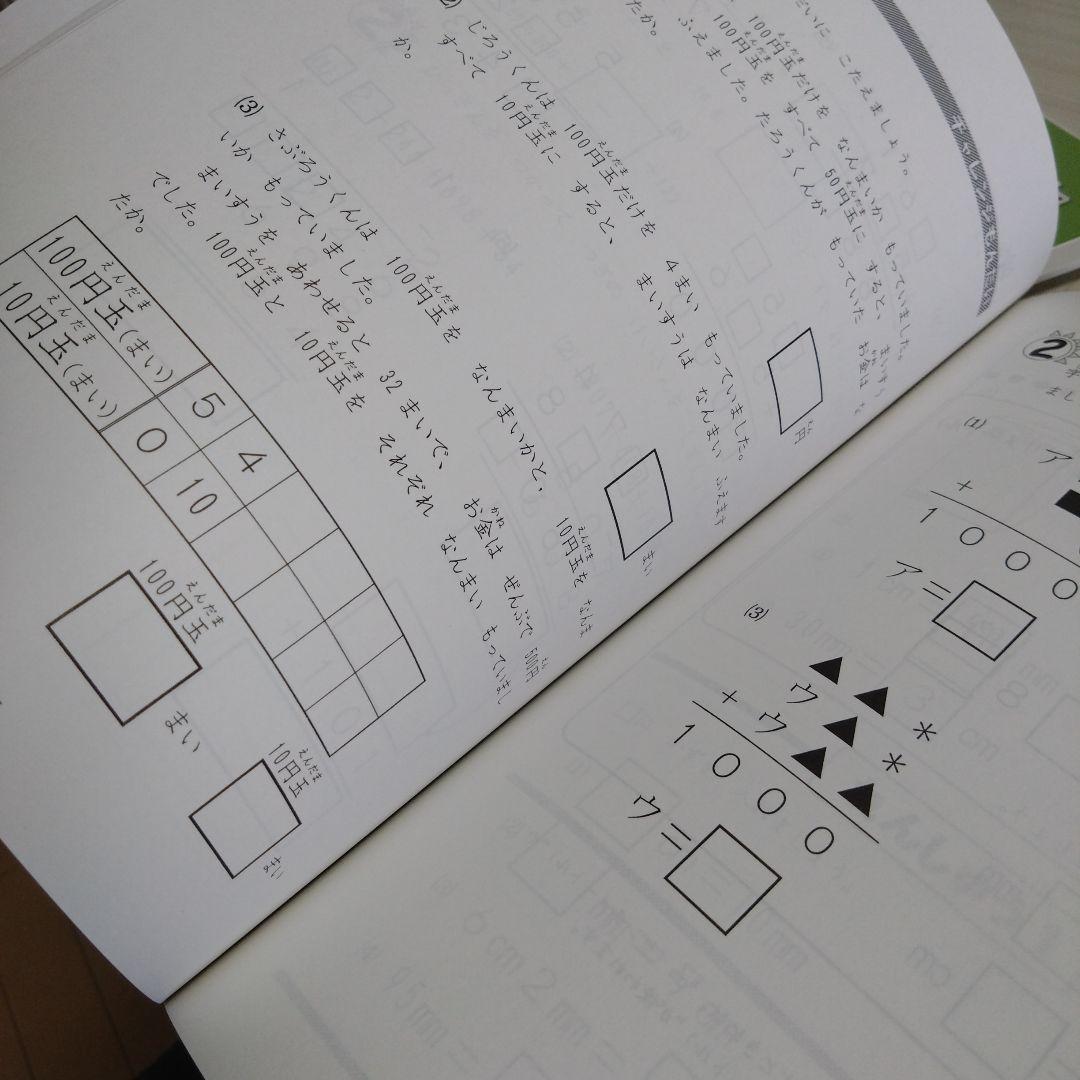 こたえましょう。
100円玉だけを なんまいか もっていました。
100円玉を すべて 50円玉に すると、
ふえました。たろうくんが もっていた お金は
たか。
円
じろうくんは 100円玉だけを 4まい もっていました。
すべて 10円玉に すると、 まいすうは なんまい ふえます
か。
まい
(3) さぶろうくんは 100円玉を なんまいかと、 10円玉を なんま
いか もっていました。
まいすうを あわせると 32まいで、 お金は ぜんぶで 500円
でした。 100円玉と 10円玉を それぞれ なんまい もっていまし
たか。
100円玉(まい) 5 4
10円玉(まい) 0 10
100円玉 まい
10円玉 まい
2
(1)
ア
+
1 0 0 0
ア=
(3)
▲ ▲ *
ウ ▲ *
+ ウ ▲ ▲
1 0 0 0
ウ=